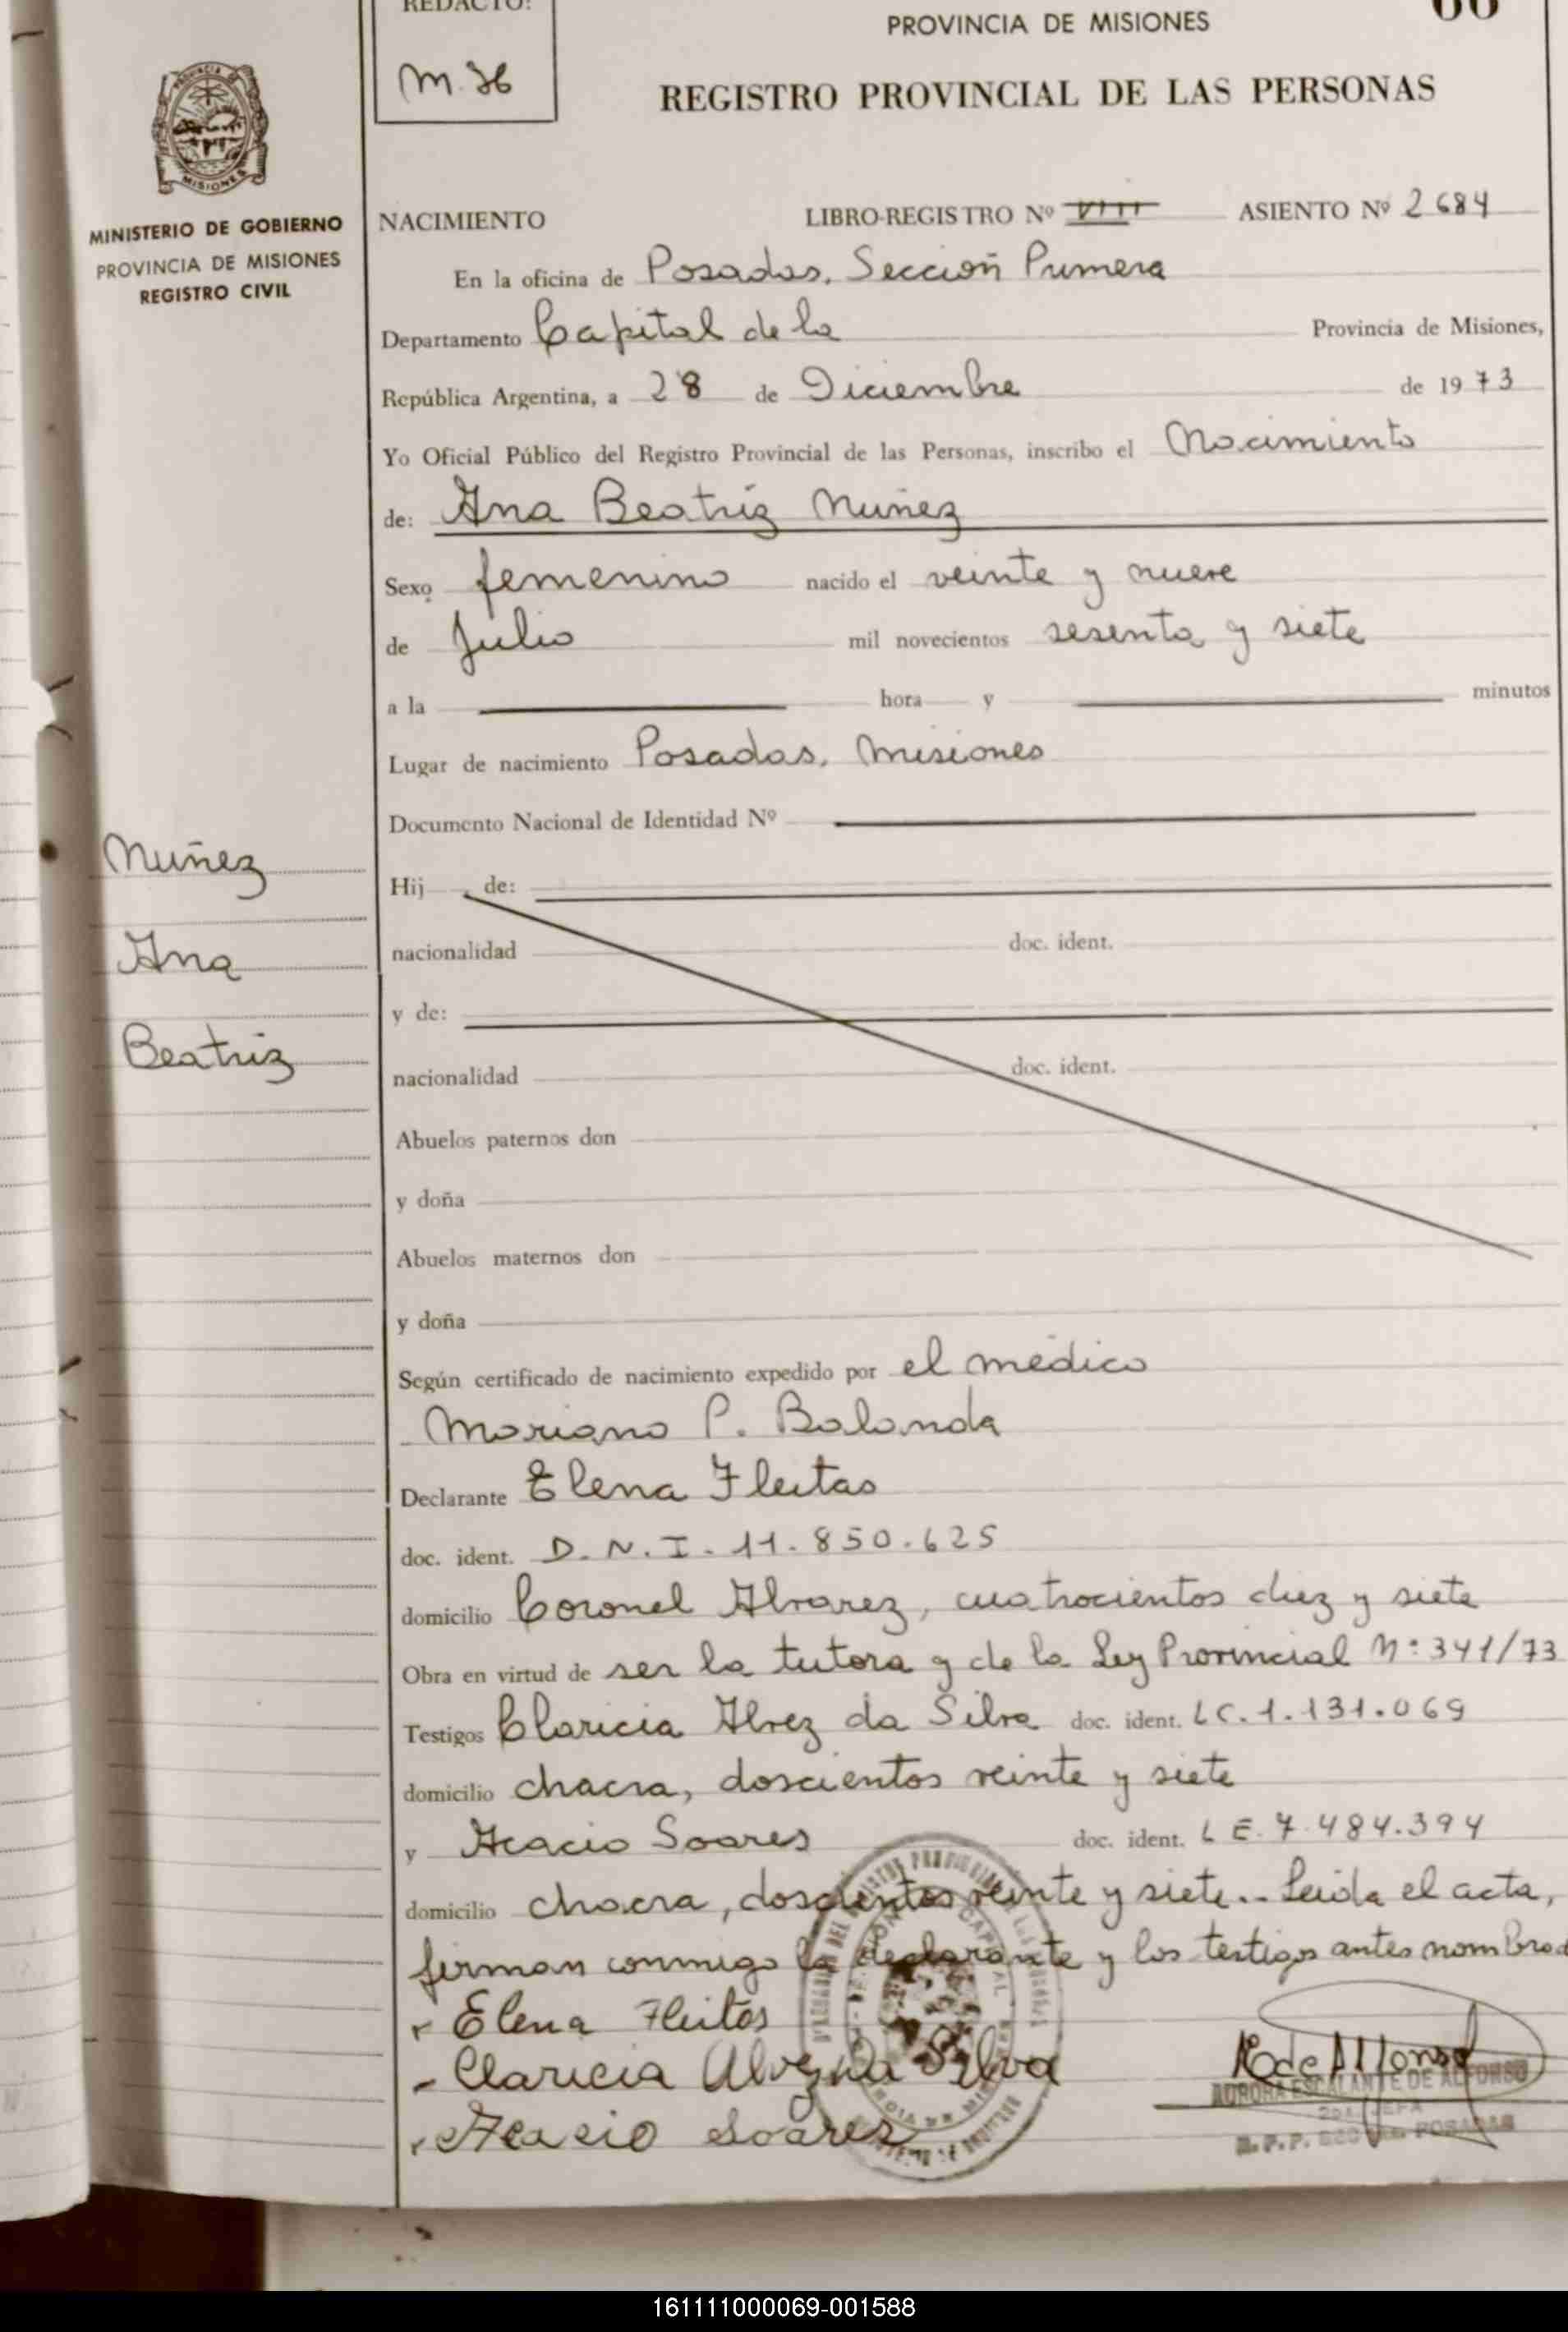 REDACTO:
M. 36
PROVINCIA DE MISIONES
66
REGISTRO PROVINCIAL DE LAS PERSONAS
MISIONES
MINISTERIO DE GOBIERNO
PROVINCIA DE MISIONES
REGISTRO CIVIL
NACIMIENTO LIBRO-REGISTRO Nº VIII ASIENTO Nº 2684
En la oficina de Posadas, Sección Primera
Departamento Capital de la Provincia de Misiones,
República Argentina, a 28 de Diciembre de 1973
Yo Oficial Público del Registro Provincial de las Personas, inscribo el Nacimiento
de: Ana Beatriz Nuñez
Sexo femenino nacido el veinte y nueve
de Julio mil novecientos sesenta y siete
a la hora y minutos
Lugar de nacimiento Posadas, Misiones
Documento Nacional de Identidad Nº
Nuñez
Hij de:
Ana
nacionalidad doc. ident.
y de:
Beatriz
nacionalidad doc. ident.
Abuelos paternos don
y doña
Abuelos maternos don
y doña
Según certificado de nacimiento expedido por el médico
Mariano P. Balanda
Declarante Elena Fleitas
doc. ident. D.N.I. 11.850.625
domicilio Coronel Alvarez, cuatrocientos diez y siete
Obra en virtud de ser la tutora y de la Ley Provincial N: 341/73
Testigos Claricia Alvez da Silva doc. ident. LC. 1.131.069
domicilio chacra, doscientos veinte y siete
y Acacio Soares doc. ident. L E. 7.484.394
domicilio chacra, doscientos veinte y siete.- Leida el acta,
firman conmigo la declarante y los testigos antes nombrad
Elena Fleitas
- Claricia Alvez da Silva
Acacio Soares
R de Alfonso
AURORA ESCALANTE DE ALFONSO
2da JEFA
R.P.P. SEC POSADAS
161111000069-001588